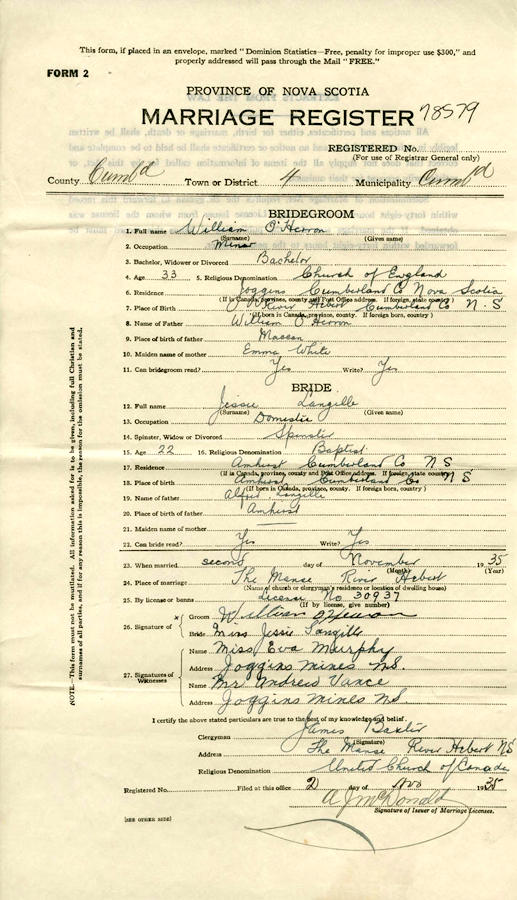 This form, if placed in an envelope, marked "Dominion Statistics—Free, penalty for improper use $300," and
properly addressed will pass through the Mail "FREE."
FORM 2
PROVINCE OF NOVA SCOTIA
MARRIAGE REGISTER 78579
REGISTERED No.
(For use of Registrar General only)
County Cumb'd Town or District 4 Municipality Cumb'd
BRIDEGROOM
1. Full name William O'Herron
(Surname) (Given names)
2. Occupation Miner
3. Bachelor, Widower or Divorced Bachelor
4. Age 33 5. Religious Denomination Church of England
6. Residence Joggins Cumberland Co Nova Scotia
(If in Canada, province, county and Post Office address. If foreign, state country)
7. Place of Birth River Hebert Cumberland Co N.S
(If born in Canada, province, county. If foreign born, country)
8. Name of Father William O'Herron
9. Place of birth of father Maccan
10. Maiden name of mother Emma White
11. Can bridegroom read? Yes Write? Yes
BRIDE
12. Full name Jessie Langille
(Surname) (Given name)
13. Occupation Domestic
14. Spinster, Widow or Divorced Spinster
15. Age 22 16. Religious Denomination Baptist
17. Residence Amherst Cumberland Co N S
(If in Canada, province, county and Post Office address. If foreign, state country)
18. Place of birth Amherst Cumberland Co N S
(If born in Canada, province, county. If foreign born, country)
19. Name of father Alfred Langille
20. Place of birth of father Amherst
21. Maiden name of mother —
22. Can bride read? Yes Write? Yes
23. When married second day of November 1935
(Month) (Year)
24. Place of marriage The Manse River Hebert
(Name of church or clergyman's residence or location of dwelling house)
25. By license or banns License No 30937
(If by license, give number)
26. Signature of
Groom x William O'Herron
Bride Miss Jessie Langille
27. Signatures of Witnesses
Name Miss Eva Murphy
Address Joggins Mines NS.
Name Mr Andrew Vance
Address Joggins Mines NS.
I certify the above stated particulars are true to the best of my knowledge and belief.
Clergyman James Baxter
(Signature)
Address The Manse River Hebert NS
Religious Denomination United Church of Canada
Registered No. Filed at this office 2 day of Nov 1935
A J McDonald
Signature of Issuer of Marriage Licenses.
(SEE OTHER SIDE)
NOTE.—This form must not be mutilated. All information asked for is to be given, including full Christian and
surnames of all parties, and if for any reason this is impossible, the reason for the omission must be stated.